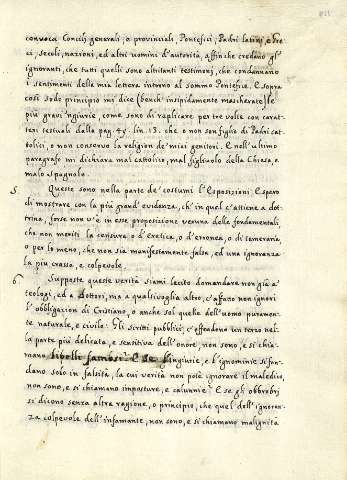 convoca Concilj generali, o provinciali, Pontefici, Padri latini, e Gre
ci, secoli, nazioni, ed altri uomini d'autorità, affinche credano gl'
ignoranti, che tutti quelli sono altritanti testimonj, che condannano
i sentimenti della mia lettera intorno al sommo Pontefice. E sopra
così sodo principio mi dice (bench' insipidamente mascherate) le
più gravi 'ngiurie, come sono di replicare per tre volte con carat-
teri testuali dalla pag. 45. lin. 13. che o non son figlio di Padri cat
tolici, o non conservo la religion de' miei genitori. E nell' ultimo
paragrafo mi dichiara mal cattolico, mal figliuolo della Chiesa, e
malo Spagnolo.
5 Queste sono nella parte de' costumi l'Esposizioni. E spero
di mostrare con la più grand' evidenza, ch' in quel ch'attiene a dot
trina, forse non v'è in esse proposizione veruna delle fondamentali
che non meriti la censura, o d'eretica, o d'erronea, o di temeraria
o per lo meno, che non sia manifestamente falsa, ed una ignoranza
la più crassa, e colpevole.
6 Supposte queste verità siami lecito domandare non già a'
teologi, ed a' dottori, ma a qualsivoglia altro, c'affatto non ignori
l'obbligazion di Cristiano, o anche sol quella dell'uomo puramen
te naturale, e civile. Gli scritti pubblici, c'offendono un terzo nel
la parte più delicata, e sensitiva dell'onore, non sono, e si chia
mano libelli famosi? E se l'ingiurie, e l'ignominie si fon
dano solo in falsità, la cui verità non potè ignorare il maledico,
non sono, e si chiamano imposture, e calunnie? E se gli obbrobrj
si dicono senza altra ragione, o principio, che quel dell'ignoran
za colpevole dell'infamante, non sono, e si chiamano malignità